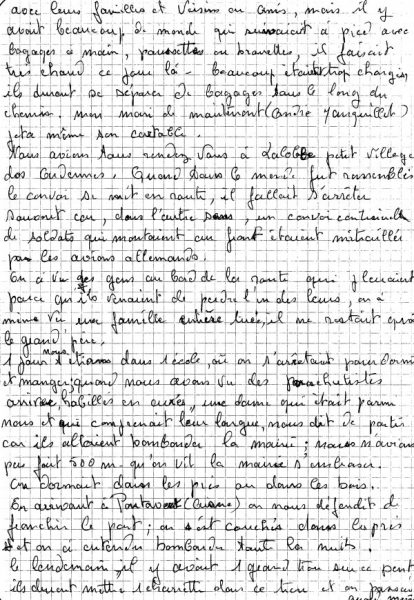 avec leurs familles et Voisins ou amis, mais il y
avait beaucoup de monde qui suivait à pied avec
bagages à main, poussettes ou brouettes, il faisait
très chaud ce jour là - beaucoup étaient trop chargés
ils durent se séparer de bagages tous le long du
chemin. mon mari de maintenant (André Janquillet)
jeta même son cartable.
Nous avions tous rendez Vous à Lalobbe petit village
des Ardennes. Quand tous le monde fut rassemblés
le convoi se mit en route, il fallait s'arrêter
souvent car, dans l'autre sens, un convoi continuelle
de soldats qui montaient au front étaient mitraillés
par les avions allemands.
On a vu des gens au bord de la route qui pleuraient
parce qu'ils venaient de perdre l'un des leurs, on a
même vu une famille entière tuée, il ne restait que
le grand père.
1 jour nous étions dans 1 école, où on s'arrêtait pour dormir
et manger; quand nous avons vu des parachutistes
arriver, habillés en curés, une dame qui était parmi
nous et qui comprenait leur langue, nous dit de partir
car ils allaient bombarder la mairie; nous n'avions
pas fait 500 m qu'on vit la mairie s'embraser.
On dormait dans les prés ou dans les bois.
En arrivant à Pontavert (Aisne) on nous défendit de
franchir le pont; on s'est couchés dans les prés
et on a entendu bombarder toute la nuit.
le lendemain, il y avait 1 grand trou sur ce pont
ils durent mettre 1 charrette dans ce trou et on passa